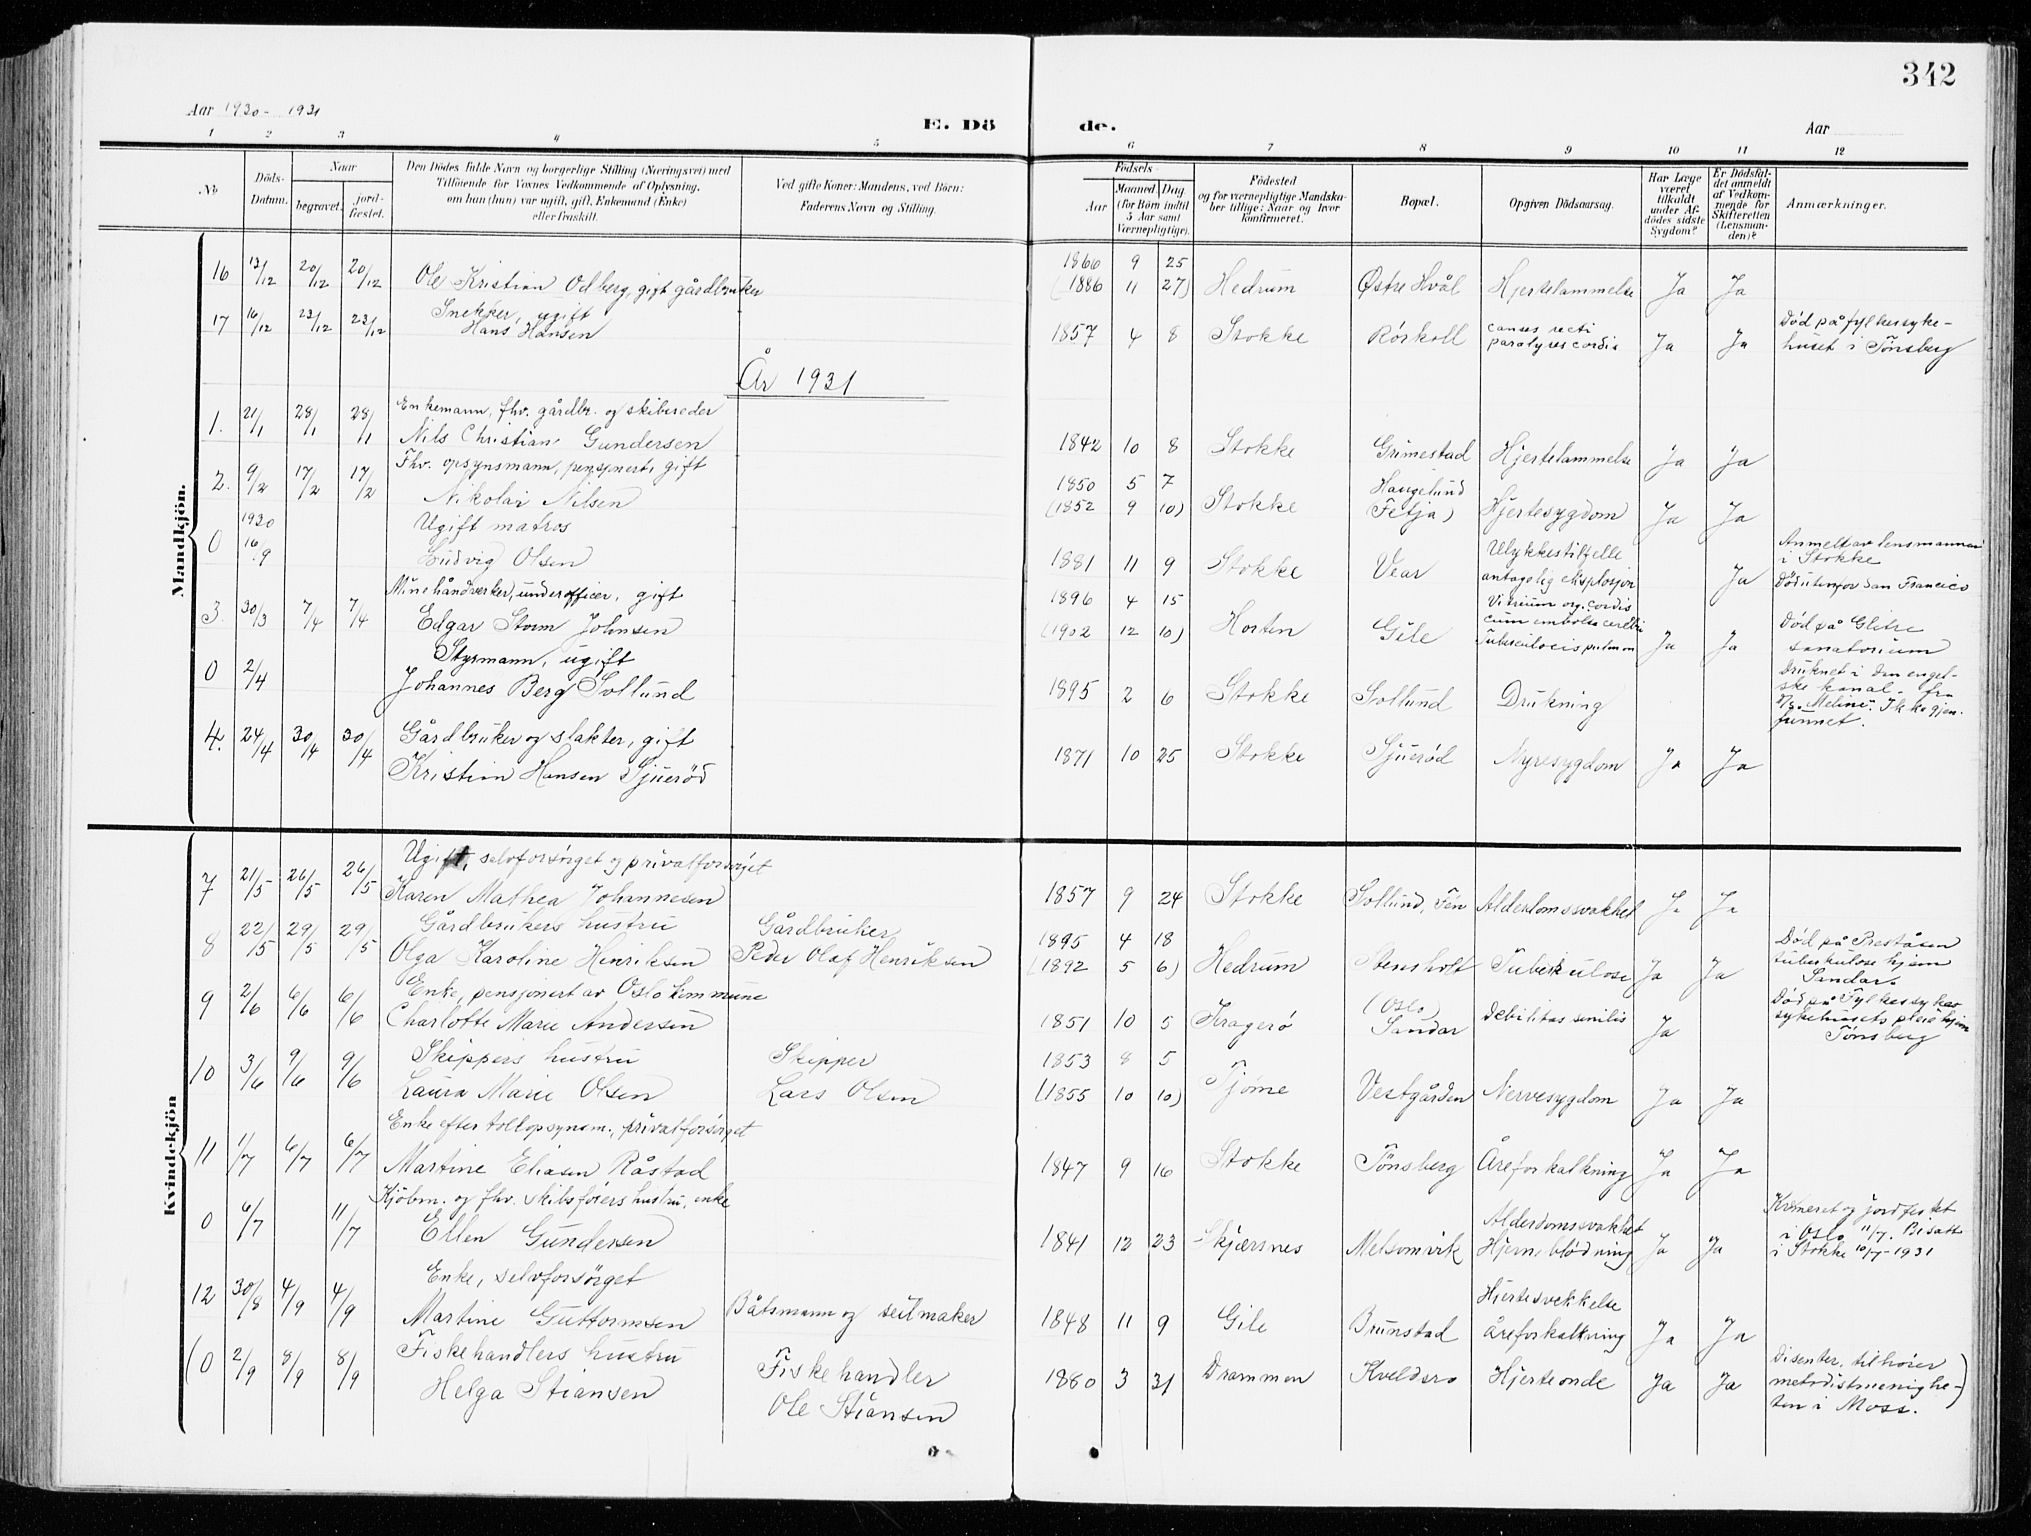 342
Aar 1930 - 1931
E. Dö de.
Aar
1 2 3 4 5 6 7 8 9 10 11 12
No
Döds-Datum.
Naar
begravet.
jord-fæstet.
Den Dödes fulde Navn og borgerlige Stilling (Næringsvei) med
Tilföiende for Voxnes Vedkommende af Oplysning,
om han (hun) var ugift, gift, Enkemand (Enke)
eller fraskilt.
Ved gifte Koner: Mandens, ved Börn:
Faderens Navn og Stilling.
Födsels-
Aar
Maaned. Dag.
(for Börn indtil
5 Aar samt
Værnepligtige).
Födested
og for værnepligtige Mandska-
ber tillige: Naar og hvor
konfirmeret.
Bopæl.
Opgiven Dödsaarsag.
Har Læge
været
tilkaldt
under Af-
dödes sidste
Sygdom?
Er Dödsfal-
det anmeldt
af Vedkom-
mende for
Skifteretten
(Lensman-
den)?
Anmærkninger.
Mandkjön.
16 13/12 20/12 20/12 Ole Kristian Odberg, gift gårdbruker 1866 9 25 (1886 11 27) Hedrum Østre Hvål Hjertelammelse Ja Ja
17 16/12 23/12 23/12 Snekker, ugift
Hans Hansen 1857 4 8 Stokke Rørkoll recti Ja Ja Død på fylkessyke-
huset i Tønsberg
År 1931
1. 21/1 28/1 28/1 Enkemann, fhv. gårdbr. og skibsreder
Nils Christian Gundersen 1842 10 8 Stokke Grimestad Hjertelammelse Ja Ja
2. 9/2 17/2 17/2 Fhv. opsynsmann, pensjonert, gift
Nikolai Nilsen 1850 5 7 (1852 9 10) Stokke Haugelund
Fetja) Hjertesygdom Ja Ja
0 1930 16/9 Ugift matros
Ludvig Olsen 1881 11 9 Stokke Vear Ulykkestilfelle
antagelig eksplosjon Ja Anmeldt av lensmannen
i Stokke
Død utenfor San Francisco
3. 30/3 7/4 7/4 Minehåndverker, underofficer, gift
Edgar Storm Johnsen 1896 4 15 (1902 12 10) Horten Gile Vitium org. cordis
cum embolia cerebri
Tuberculosis pulmon Ja Ja Død på Glitre
sanatorium
0 2/4 Styrmann, ugift
Johannes Berg Sollund 1895 2 6 Stokke Sollund Drukning Druknet i den engel-
ske kanal fra
"Meline". Ikke gjen-
funnet.
4. 24/4 30/4 30/4 Gårdbruker og slakter, gift
Kristian Hansen Sjuerød 1871 10 25 Stokke Sjuerød Nyresygdom Ja Ja
Kvindekjön
7 21/5 26/5 26/5 Ugift, selvforsørget og privatforsørget
Karen Mathea Johannesen 1857 9 24 Stokke Sollund, Fen Alderdomssvakhet Ja Ja
8 22/5 29/5 29/5 Gårdbrukers hustru
Olga Karoline Henriksen Gårdbruker
Peder Olaf Henriksen 1895 4 18 (1892 5 6) Hedrum Stensholt Tuberkulose Ja Ja Død på Preståsen
tuberkulosehjem
Sandar.
9 2/6 6/6 6/6 Enke, pensjonert av Oslo kommune
Charlotte Marie Andersen 1851 10 5 Kragerø (Oslo
Sandar Debilitas senilis Ja Død på
sykehusets pleiehjem
Tønsberg
10 3/6 9/6 9/6 Skippers hustru
Laura Marie Olsen Skipper
Lars Olsen 1853 8 5 (1855 10 10) Tjøme Vestgården Nervesygdom Ja Ja
11 1/7 6/7 6/7 Enke efter tollopsynsm., privatforsørget
Martine Eliasen Råstad 1847 9 16 Stokke Tønsberg Åreforkalkning Ja Ja
0 6/7 11/7 Kjøbm. og fhv. skibsførers hustru, enke
Ellen Gundersen 1841 12 23 Skjærsnes Melsomvik Alderdomssvakhet
Hjerneblødning Ja Ja Kremeret og jordfestet
i Oslo 11/7. Bisatt
i Stokke 10/7-1931
12 30/8 4/9 4/9 Enke, selvforsørget
Martine Guttormsen Båtsmann og seilmaker 1848 11 9 Gile Brunstad Hjertesvekkelse
åreforkalkning Ja Ja
(0 2/9 8/9 8/9 Fiskehandlers hustru
Helga Stiansen Fiskehandler
Ole Stiansen 1860 3 31 Drammen Kveldsro Hjerteonde Ja Ja Disenter, tilhører
metodistmenighe-
ten i Moss.)